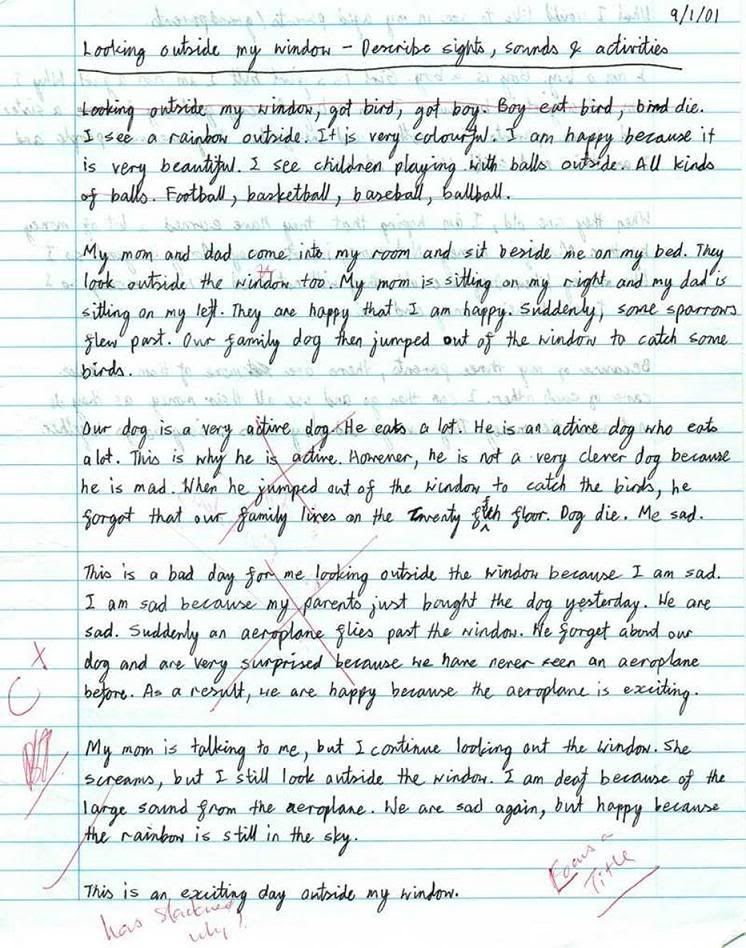 9/1/01
Looking outside my window - Describe sights, sounds & activities
Looking outside my window, got bird, got boy. Boy eat bird, bird die.
I see a rainbow outside. It is very colourful. I am happy because it
is very beautiful. I see children playing with balls outside. All kinds
of balls. Football, basketball, baseball, ballball.
My mom and dad come into my room and sit beside me on my bed. They
look outside the window too. My mom is sitting on my right and my dad is
sitting on my left. They are happy that I am happy. Suddenly, some sparrows
flew past. Our family dog then jumped out of the window to catch some
birds.
Our dog is a very active dog. He eats a lot. He is an active dog who eats
a lot. This is why he is active. However, he is not a very clever dog because
he is mad. When he jumped out of the window to catch the birds, he
forgot that our family lives on the Twenty fifth floor. Dog die. Me sad.
This is a bad day for me looking outside the window because I am sad.
I am sad because my parents just bought the dog yesterday. We are
sad. Suddenly an aeroplane flies past the window. We forget about our
dog and are very surprised because we have never seen an aeroplane
before. As a result, we are happy because the aeroplane is exciting.
My mom is talking to me, but I continue looking out the window. She
screams, but I still look outside the window. I am deaf because of the
large sound from the aeroplane. We are sad again, but happy because
the rainbow is still in the sky.
This is an exciting day outside my window.
Focus on
Title
has slackened
why?